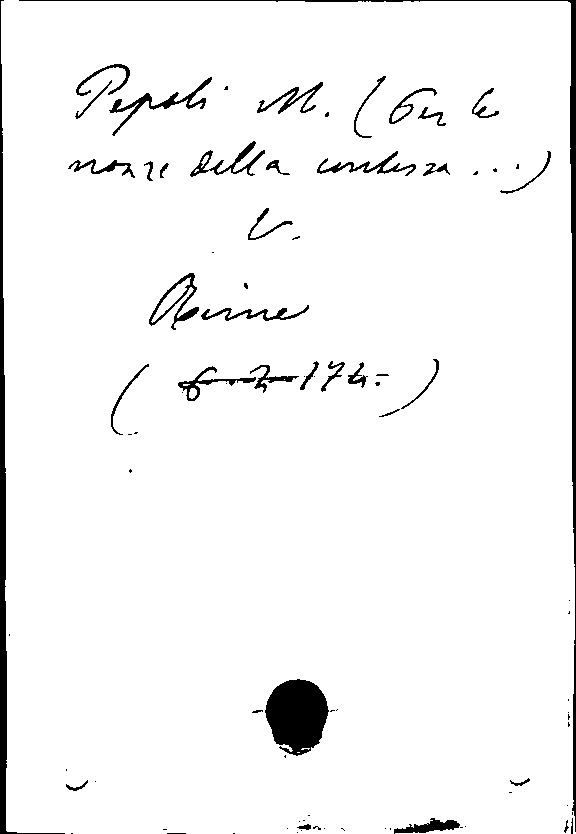 Pepoli M. (Per le
nozze della contessa ...)
V.
Rime
( 6. 2. 174. )